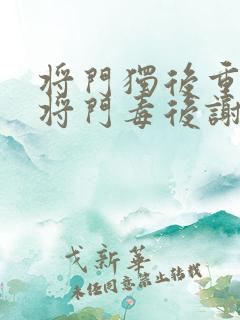 将門獨後重
将門毒後謝
戈新華
未经同意禁止转载